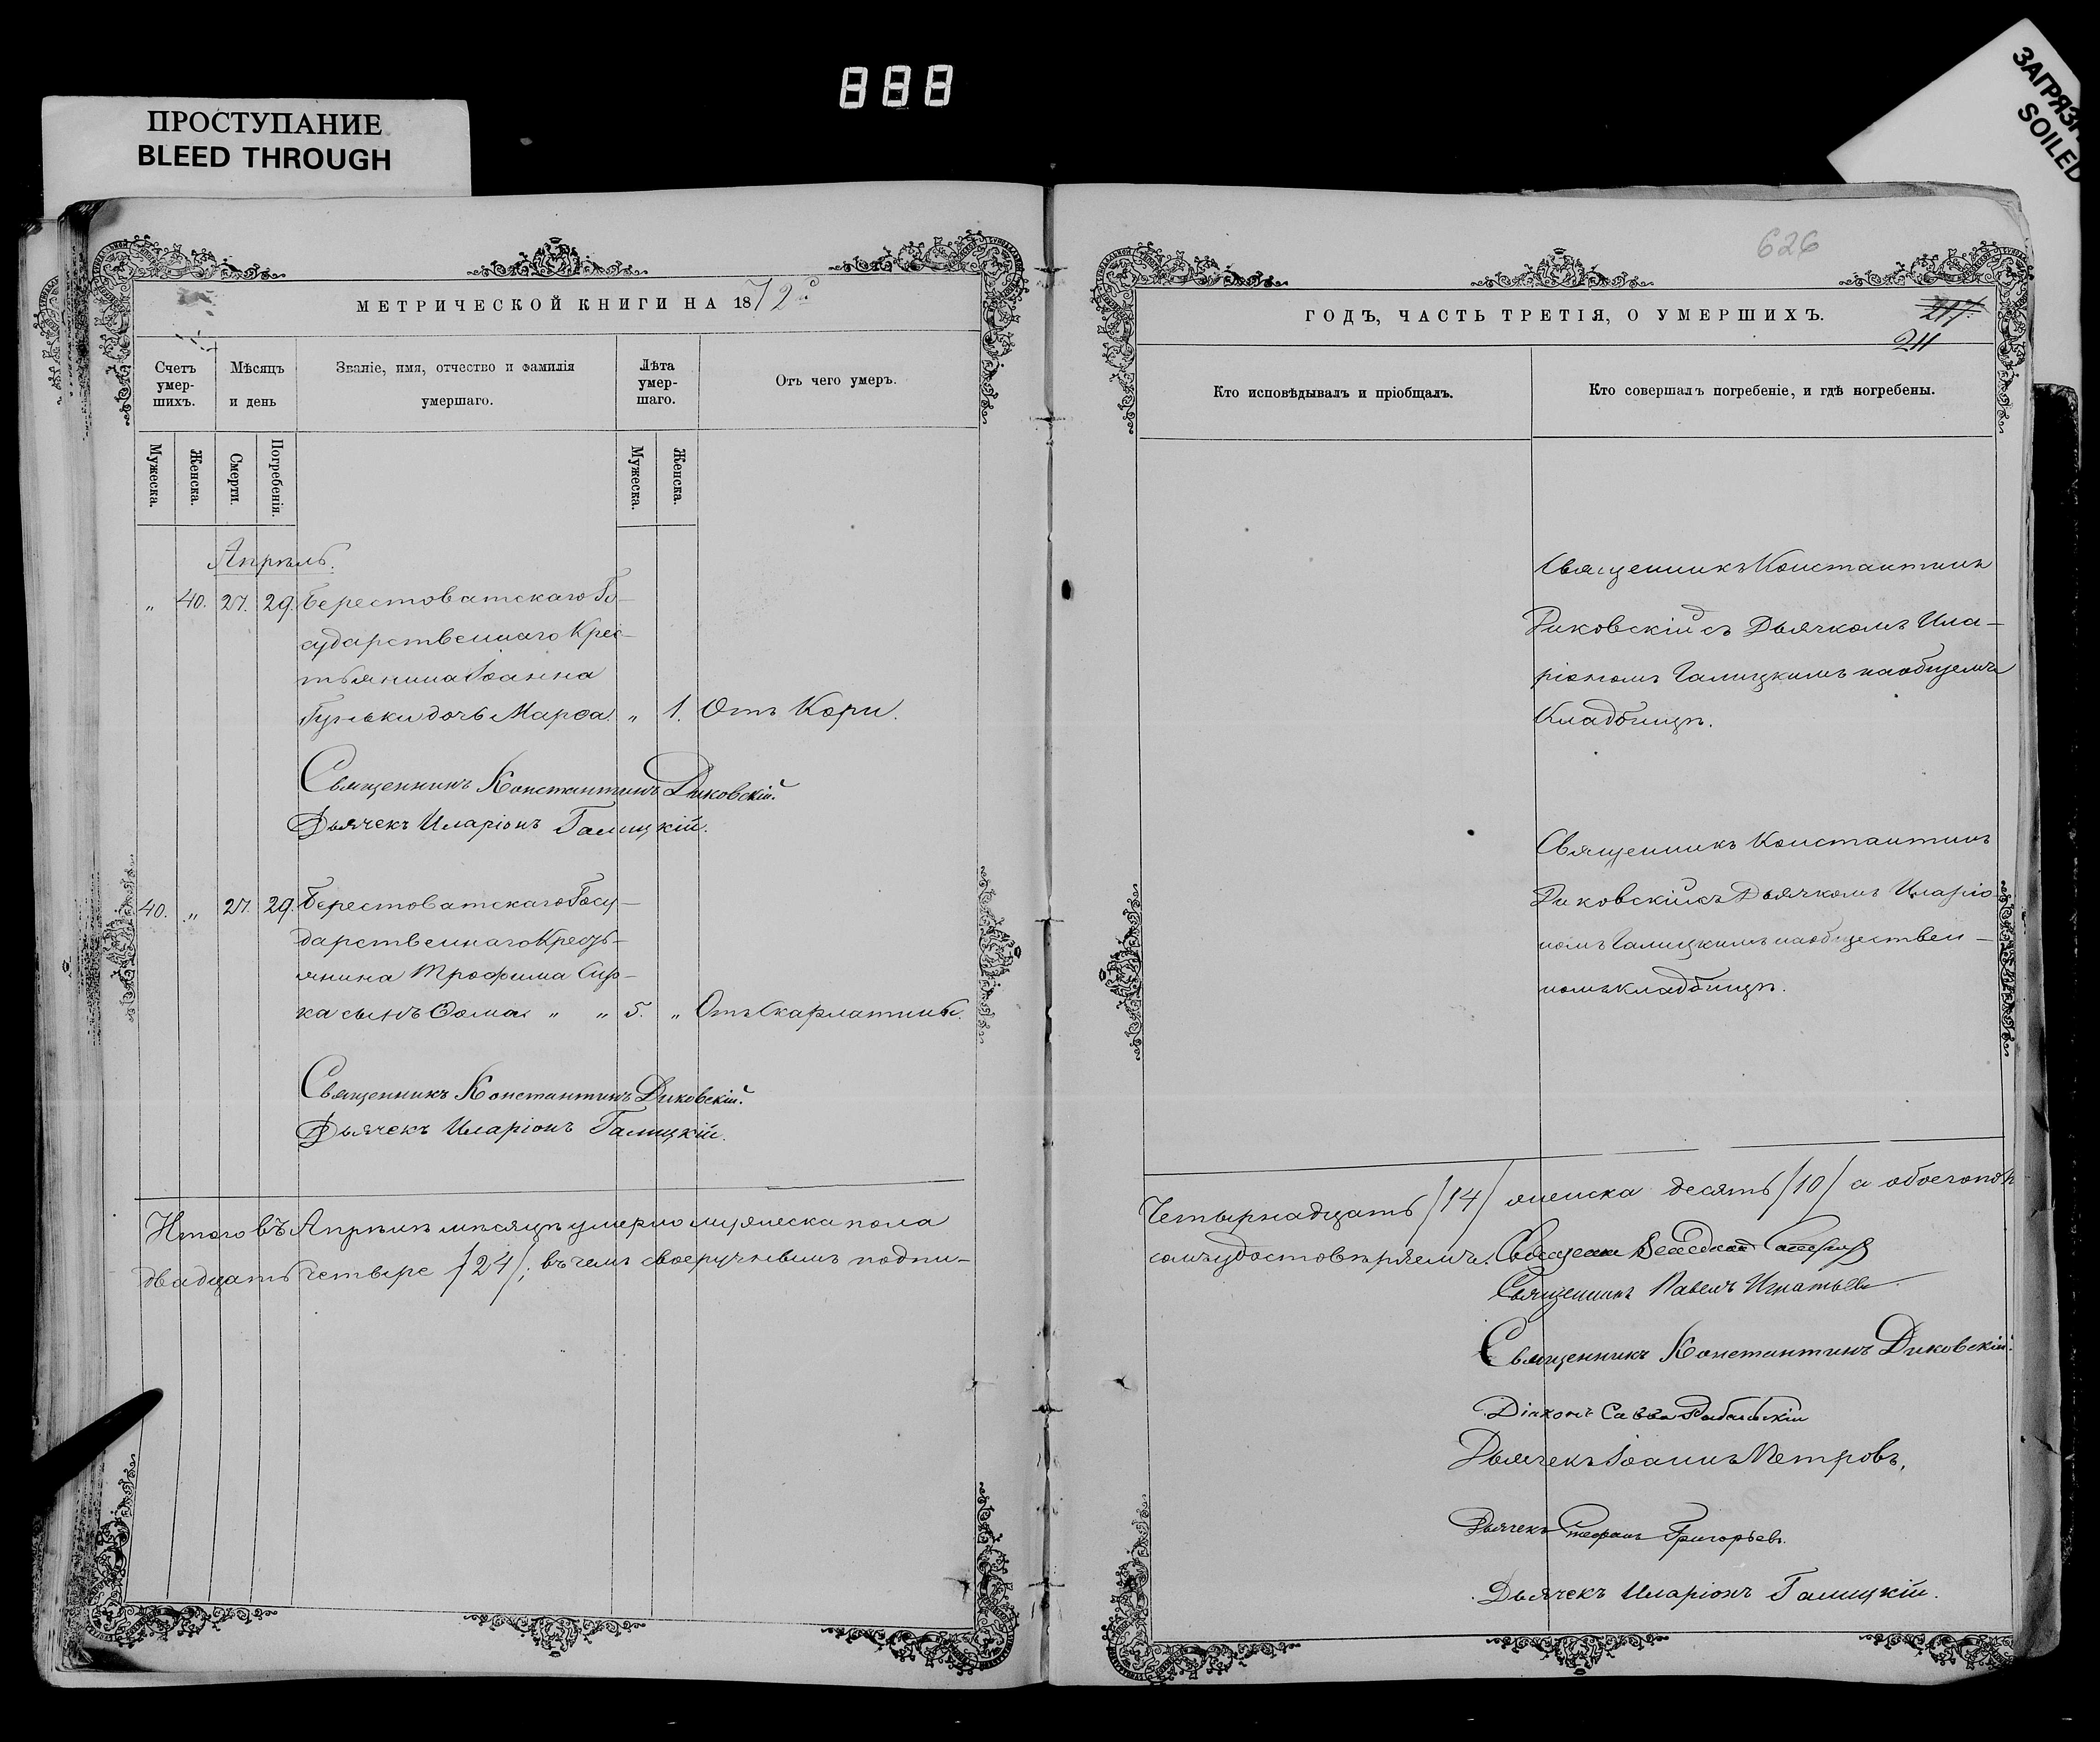 888
ПРОСТУПАНИЕ
BLEED THROUGH
ЗАГРЯЗН
SOILED
МЕТРИЧЕСКОЙ КНИГИ НА 1872й
Счетъ умер-шихъ.
Мѣсяцъ и день
Званіе, имя, отчество и фамилія умершаго.
Лѣта умер-шаго.
Отъ чего умеръ.
Мужеска.
Женска.
Смерти.
Погребенія.
Мужеска.
Женска.
Апрѣль.
„ 40. 27. 29. Берестоватскаго Го-
сударственнаго Крес-
тьянина Іоанна
дочь Марѳа. „ 1. Отъ Кори.
Священникъ Константинъ Диковскій.
Дьячекъ Иларіонъ Галицкій.
40. „ 27. 29. Берестоватскаго Госу-
дарственнаго Кресть-
янина Трофима Сир-
ка сынъ Ѳома „ „ 5. „ Отъ Скарлатины.
Священникъ Константинъ Диковскій.
Дьячекъ Иларіонъ Галицкій.
Итого въ Апрѣлѣ мѣсяцѣ умерло мужеска пола
двадцать четыре /24/; въ чемъ своеручнымъ подпи-
626
ГОДЪ, ЧАСТЬ ТРЕТІЯ, О УМЕРШИХЪ.
217.
211
Кто исповѣдывалъ и пріобщалъ.
Кто совершалъ погребеніе, и гдѣ погребены.
Священникъ Константинъ
Диковскій съ Дьячкомъ Ила-
ріономъ Галицкимъ на общемъ
Кладбищѣ.
Священникъ Константинъ
Диковскій съ Дьячкомъ Иларіо
номъ Галицкимъ на обществен-
номъ кладбищѣ.
Четырнадцать /14/ женска десять /10/ а обоего пола
сомъ удостовѣряемъ. Священникъ
Священникъ Павелъ Игнатьевъ
Священникъ Константинъ Диковскій.
Діаконъ Савва
Дьячекъ Іоаннъ Петровъ,
Дьячекъ Стефанъ Григорьевъ.
Дьячекъ Иларіонъ Галицкій.